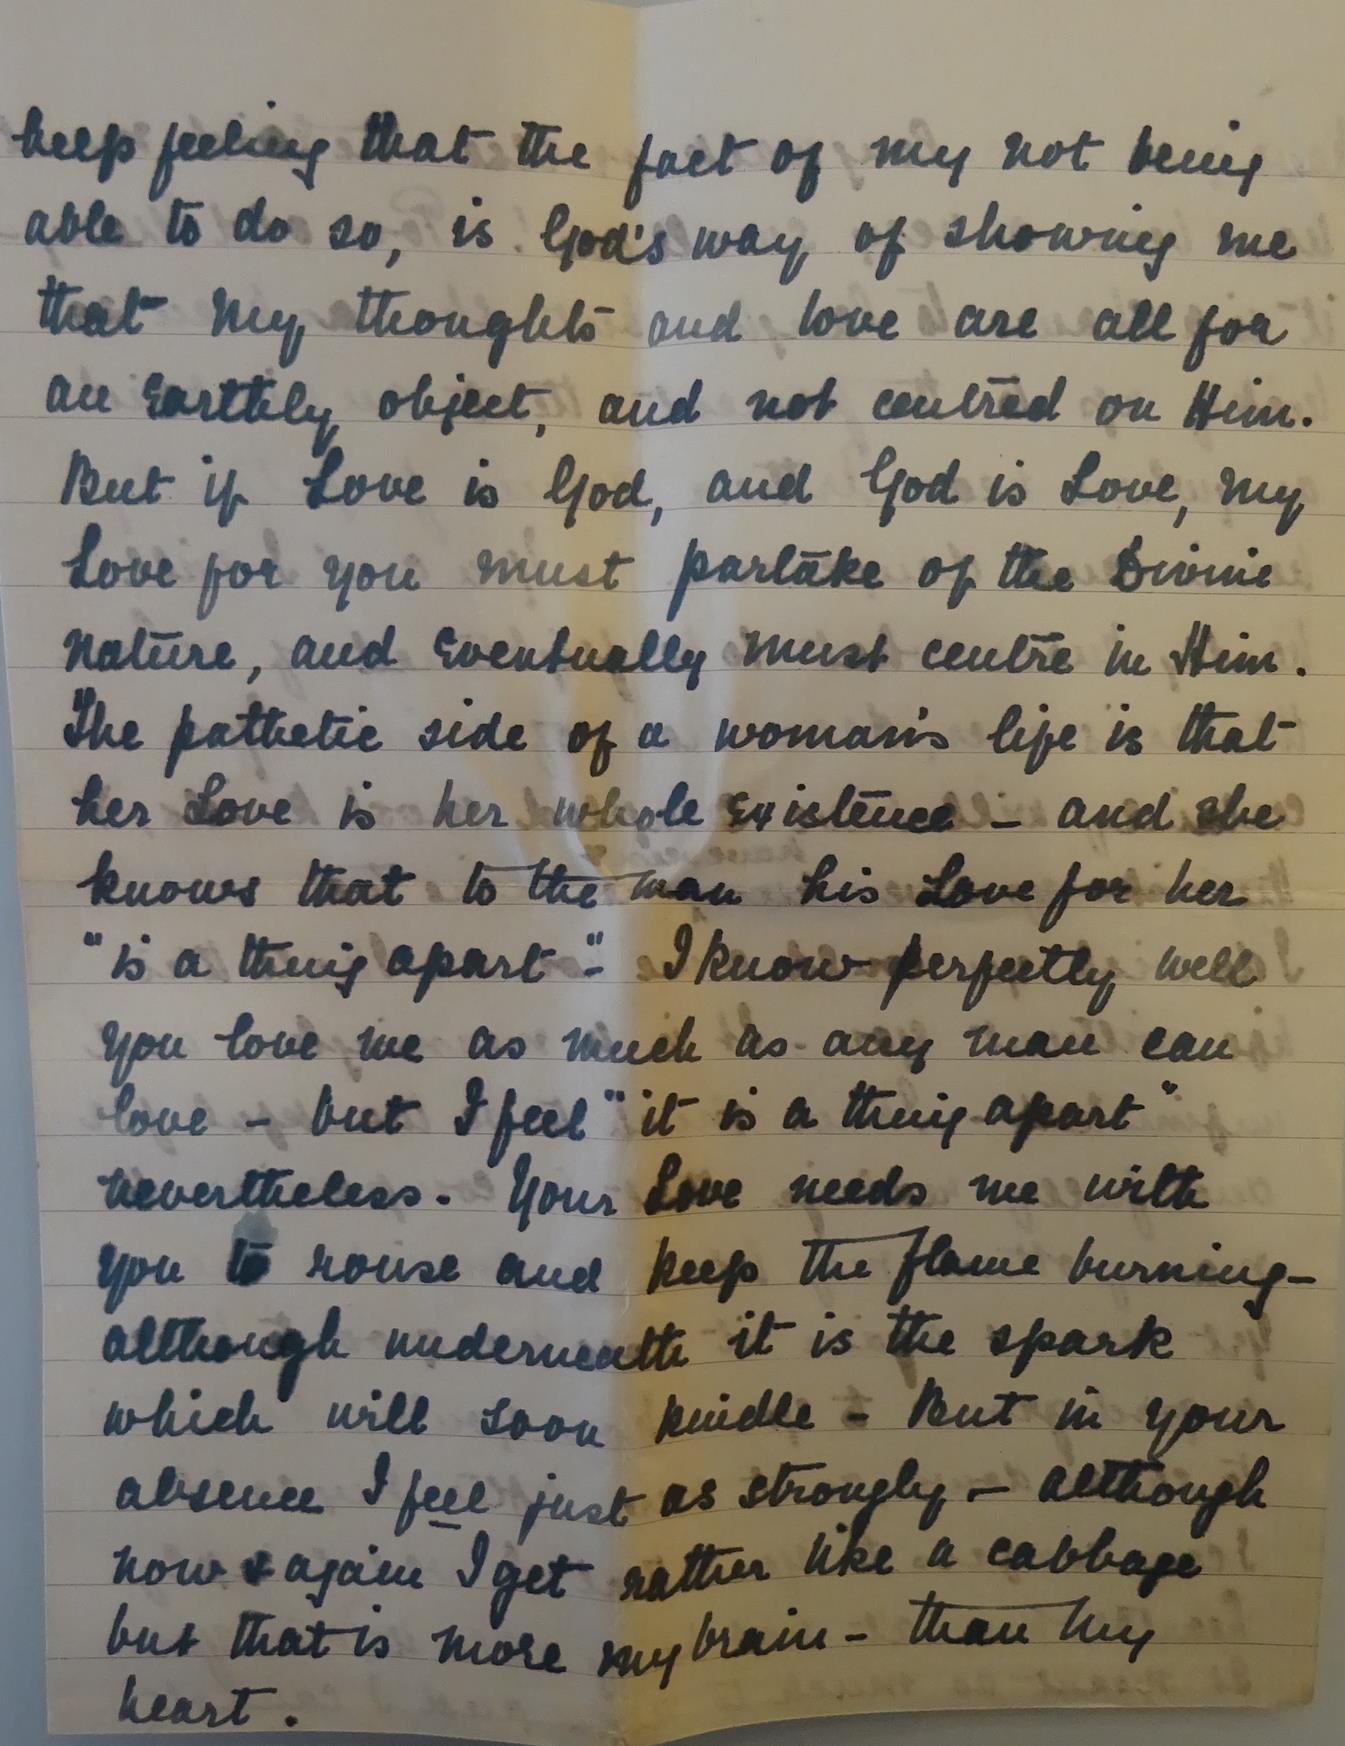 keep feeling that the fact of my not being
able to do so, is God's way of showing me
that my thoughts and love are all for
an Earthly object, and not centred on Him.
But if Love is God, and God is Love, my
Love for you must partake of the Divine
Nature, and Eventually must centre in Him.
The pathetic side of a woman's life is that
her Love is her whole Existence – and she
knows that to the man his Love for her
"is a thing apart". I know perfectly well
you love me as much as any man can
love – but I feel "it is a thing apart"
nevertheless. Your Love needs me with
you to rouse and keep the flame burning –
although underneath it is the spark
which will soon kindle – But in your
absence I feel just as strongly – although
now & again I get rather like a cabbage
but that is more my brain – than my
heart.